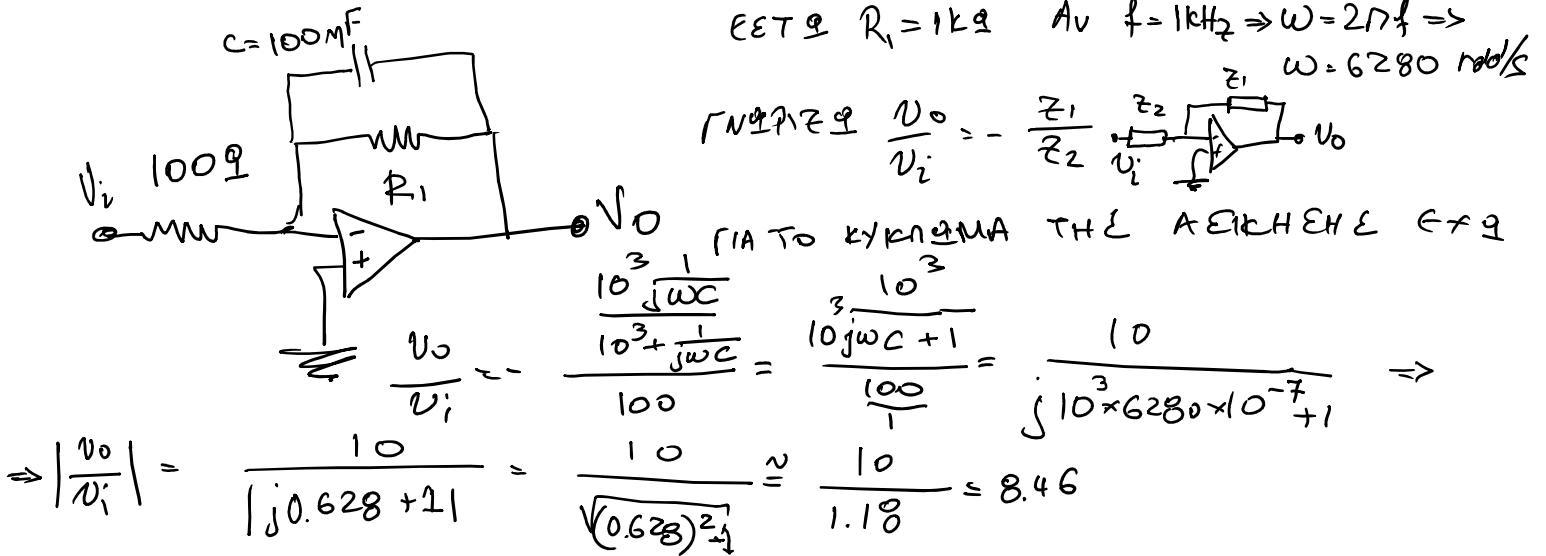 C=100nF
ΕΣΤΩ R₁=1kΩ Αν f=1kHz ⇒ ω=2πf ⇒
ω=6280 rad/s
Vi 100Ω R₁ Vo
ΓΝΩΡΙΖΩ vo/vi = - Z1/Z2
Z1 Z2 Vi Vo
ΓΙΑ ΤΟ ΚΥΚΛΩΜΑ ΤΗΣ ΑΣΚΗΣΗΣ ΕΧΩ
vo/vi = - ((10³ 1/jωC)/(10³ + 1/jωC))/100 = (10³/(10³jωC+1))/(100/1) = 10/(j10³×6280×10⁻⁷+1) ⇒
⇒ |vo/vi| = 10/|j0.628+1| = 10/√((0.628)²+1) ≅ 10/1.18 = 8.46